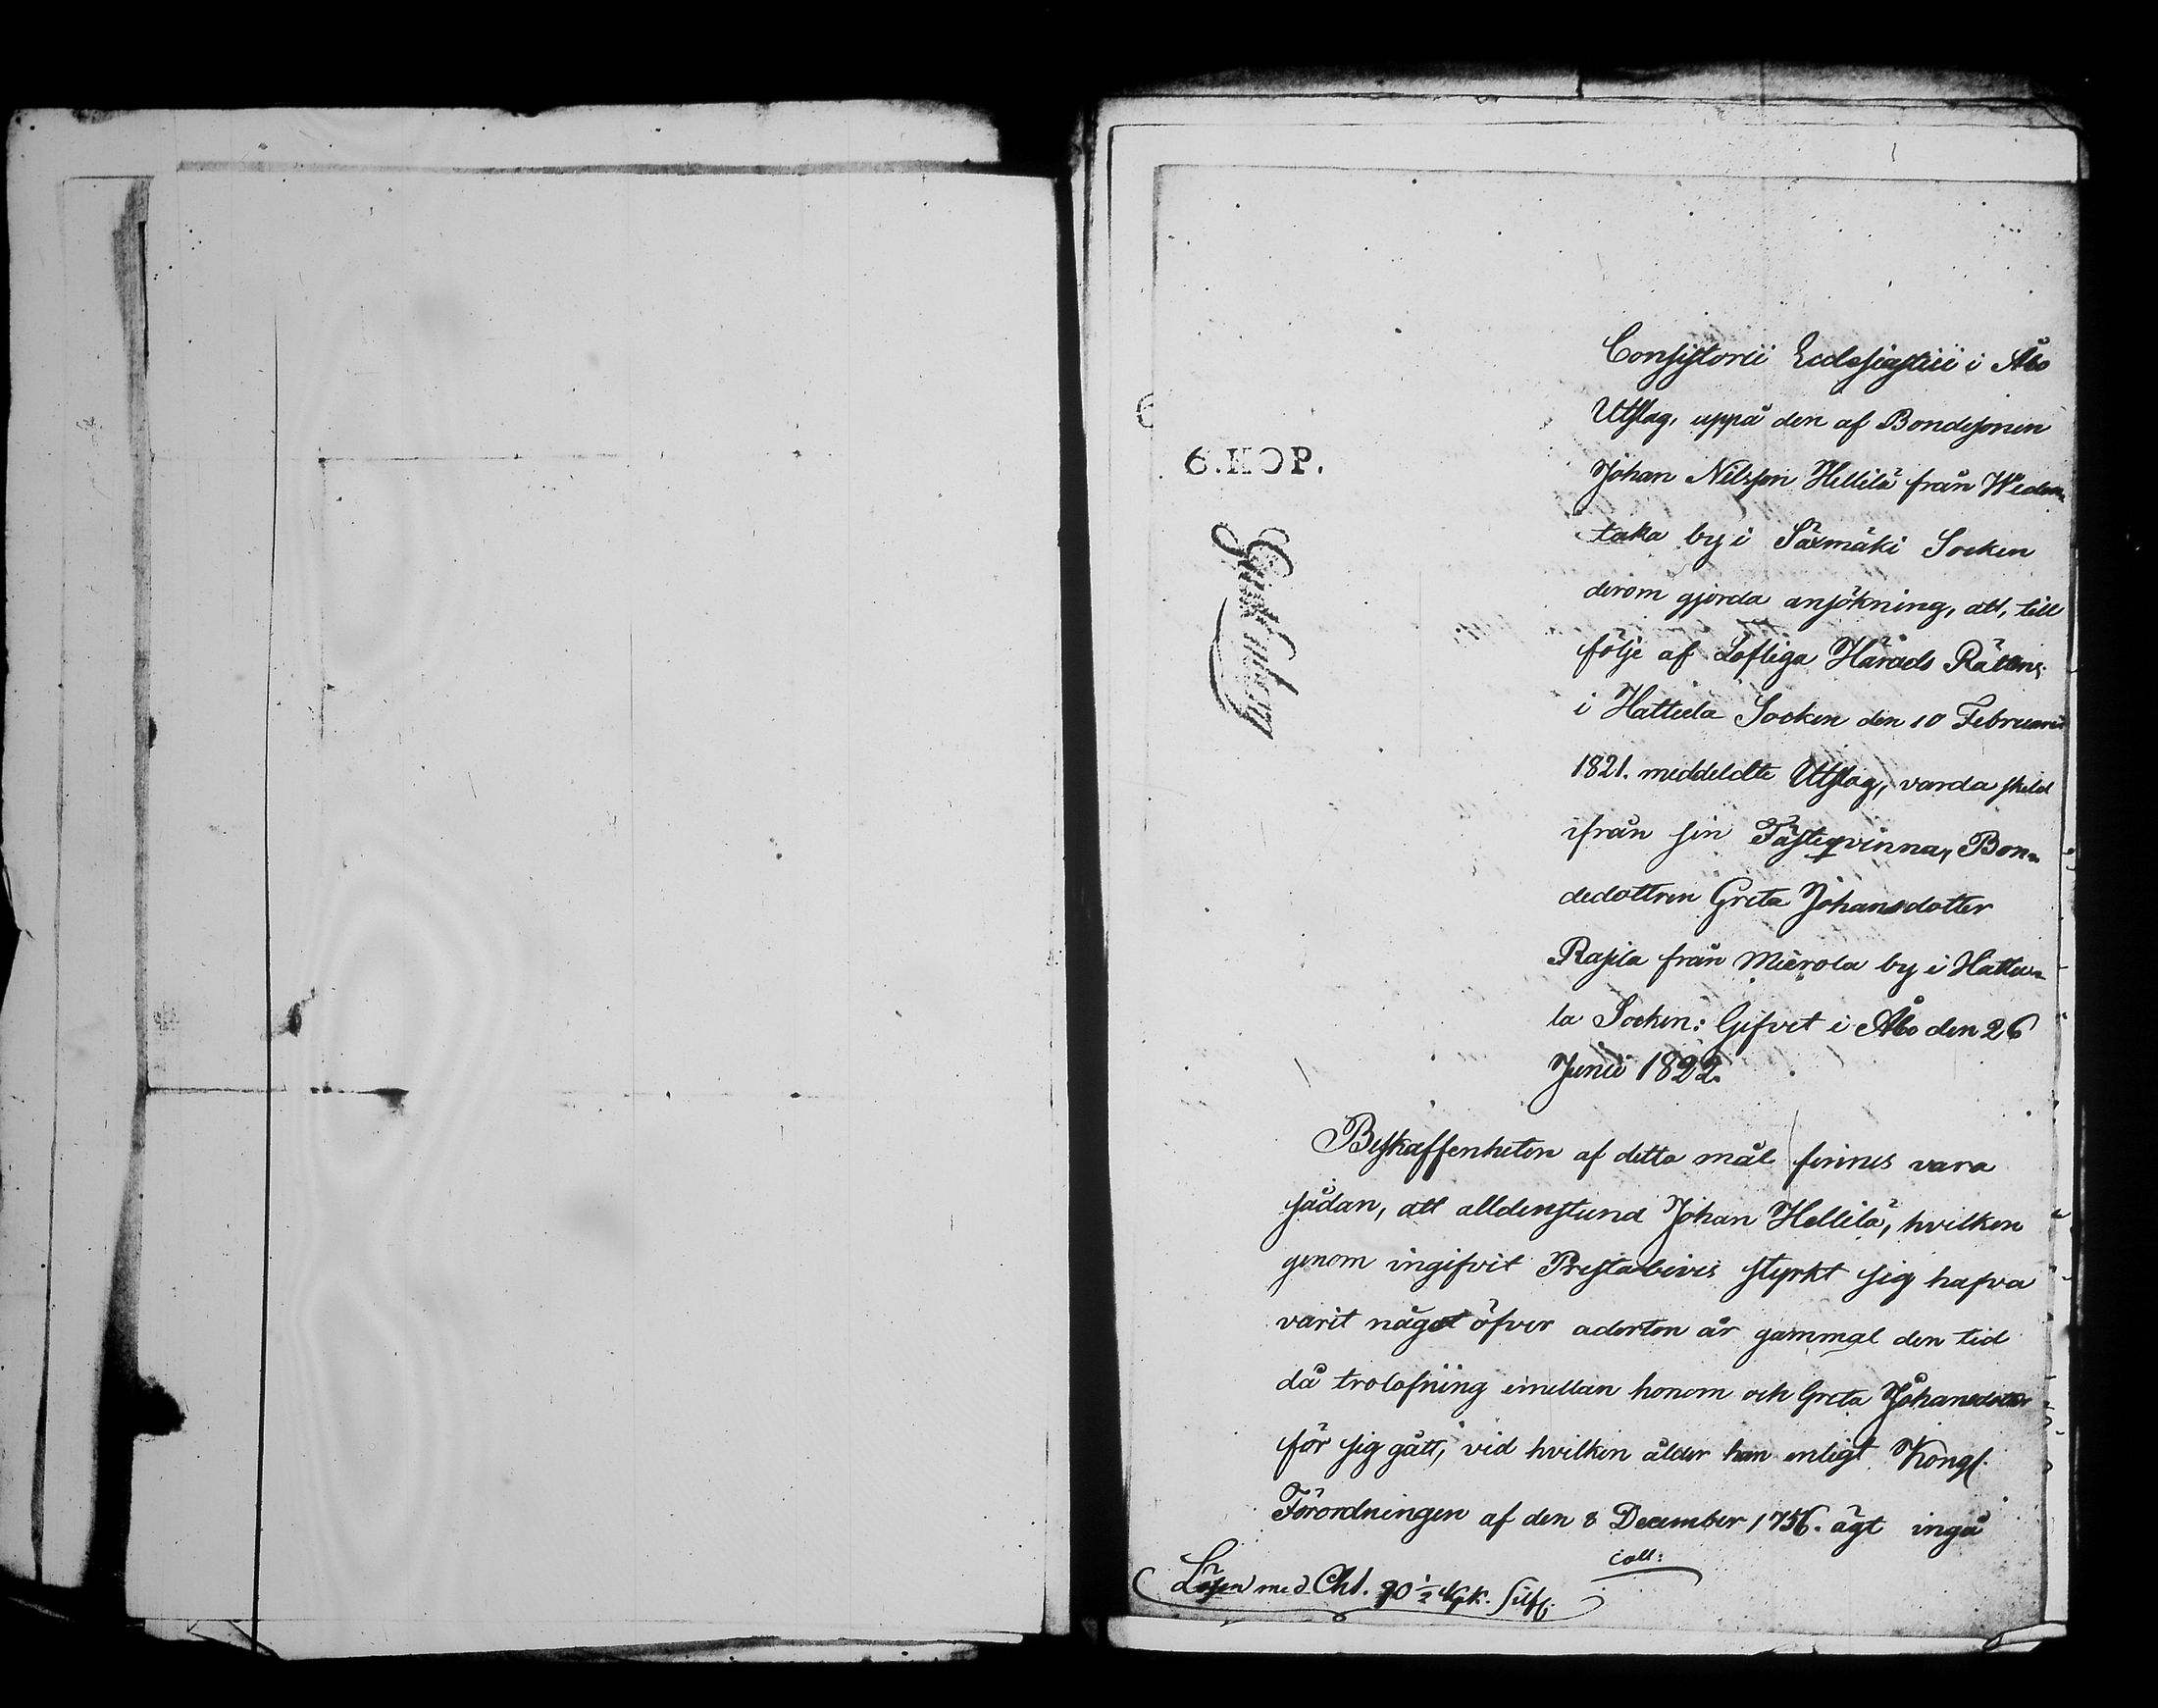 6.KOP.
Consistorii Ecclesiastici i Åbo
Utslag, uppå den af Bondesonen
Johan Nilsson Hellilä från Weden-
taka by i Säxmäki Socken
derom gjorda ansökning, att, till
följe af Lofliga Härads Rättens
i Hattula Socken den 10 Februarii
1821. meddelte Utslag, varda skild
ifrån sin Fästeqvinna, Bon-
dedottren Greta Johansdotter
Rasila från Mierola by i Hattu-
la Socken: Gifvet i Åbo den 26
Junii 1822.
Beskaffenheten af detta mål finnes vara
sådan, att alldenstund Johan Hellilä, hvilken
genom ingifvit Prestabevis styrkt sig hafva
varit något öfver aderton år gammal den tid
då trolofning emellan honom och Greta Johansdotter
för sig gått, vid hvilken ålder han enligt Kongl.
Förordningen af den 8 December 1756. ägt ingå
coll:
Lösen med Cht. 90 1/2 kpk. Silf.